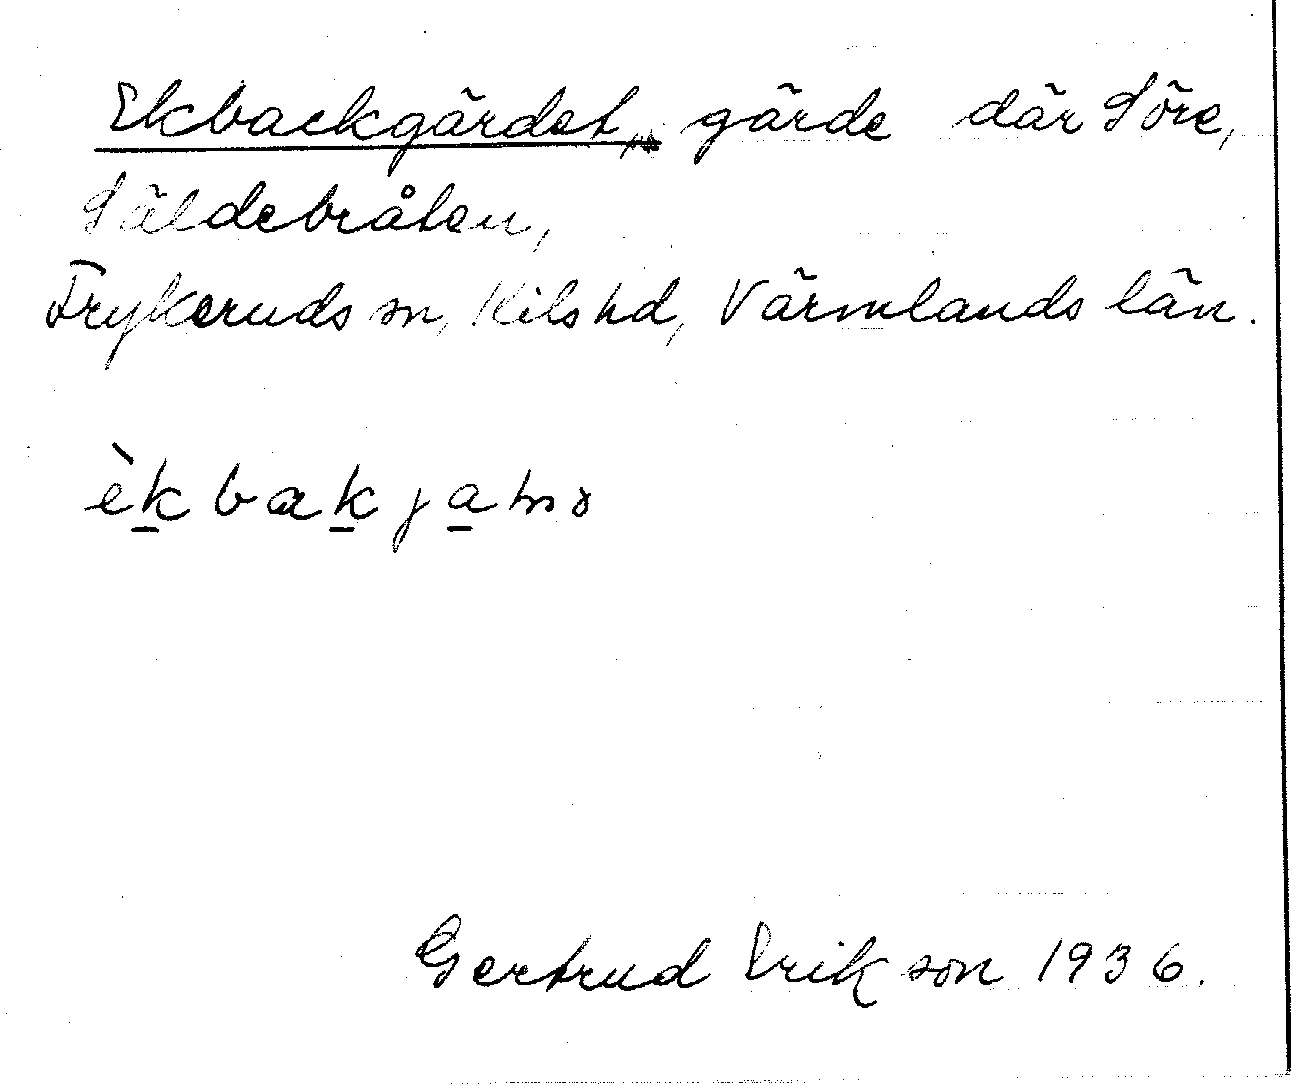 Ekbackgärdet, gärde där Söre,
Säldebråten,
Frykeruds sn, Kils hd, Värmlands län.
èkbakja
Gertrud Erikson 1936.